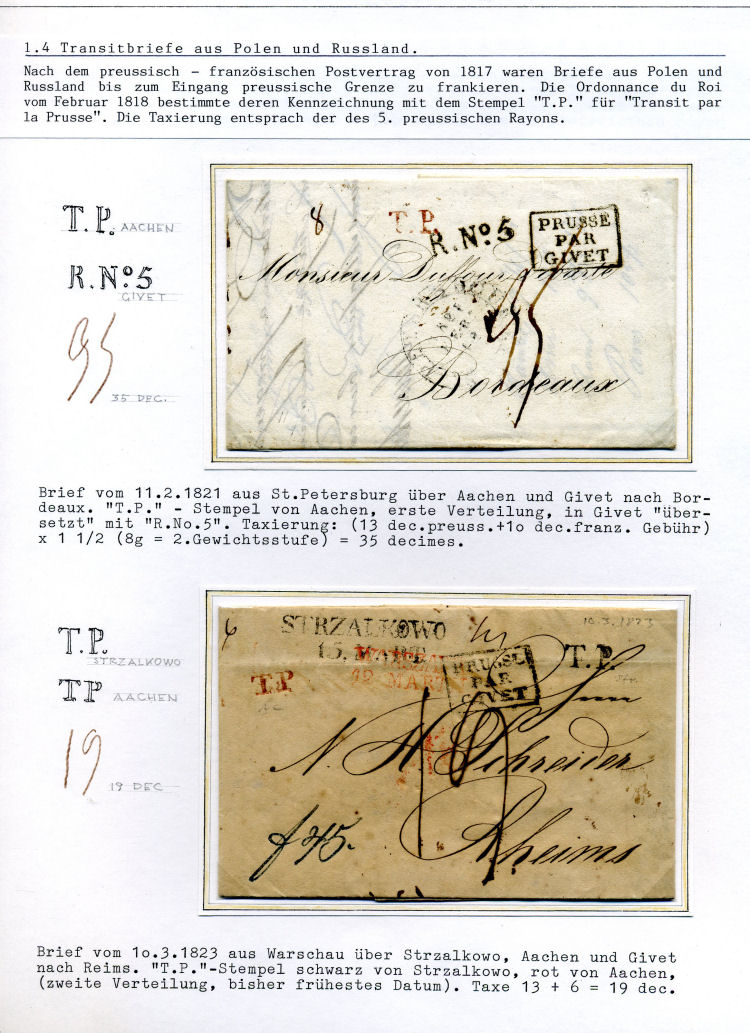 1.4 Transitbriefe aus Polen und Russland.
Nach dem preussisch – französischen Postvertrag von 1817 waren Briefe aus Polen und
Russland bis zum Eingang preussische Grenze zu frankieren. Die Ordonnance du Roi
vom Februar 1818 bestimmte deren Kennzeichnung mit dem Stempel "T.P." für "Transit par
la Prusse". Die Taxierung entsprach der des 5. preussischen Rayons.
T.P. AACHEN
R.No.5
GIVET
35
35 DEC.
8
T.P.
R.No.5
PRUSSE
PAR
GIVET
Monsieur Duffour
35
Bordeaux
Brief vom 11.2.1821 aus St.Petersburg über Aachen und Givet nach Bor-
deaux. "T.P." - Stempel von Aachen, erste Verteilung, in Givet "über-
setzt" mit "R.No.5". Taxierung: (13 dec.preuss.+1o dec.franz. Gebühr)
x 1 1/2 (8g = 2.Gewichtsstufe) = 35 decimes.
T.P.
STRZALKOWO
TP AACHEN
19
19 DEC
6
STRZALKOWO
10.3.1823
15. MART
12 MART
T.P
PRUSSE
PAR
GIVET
T.P.
N. H. Schreider
19
Rheims
f 45.
Brief vom 1o.3.1823 aus Warschau über Strzalkowo, Aachen und Givet
nach Reims. "T.P."-Stempel schwarz von Strzalkowo, rot von Aachen,
(zweite Verteilung, bisher frühestes Datum). Taxe 13 + 6 = 19 dec.